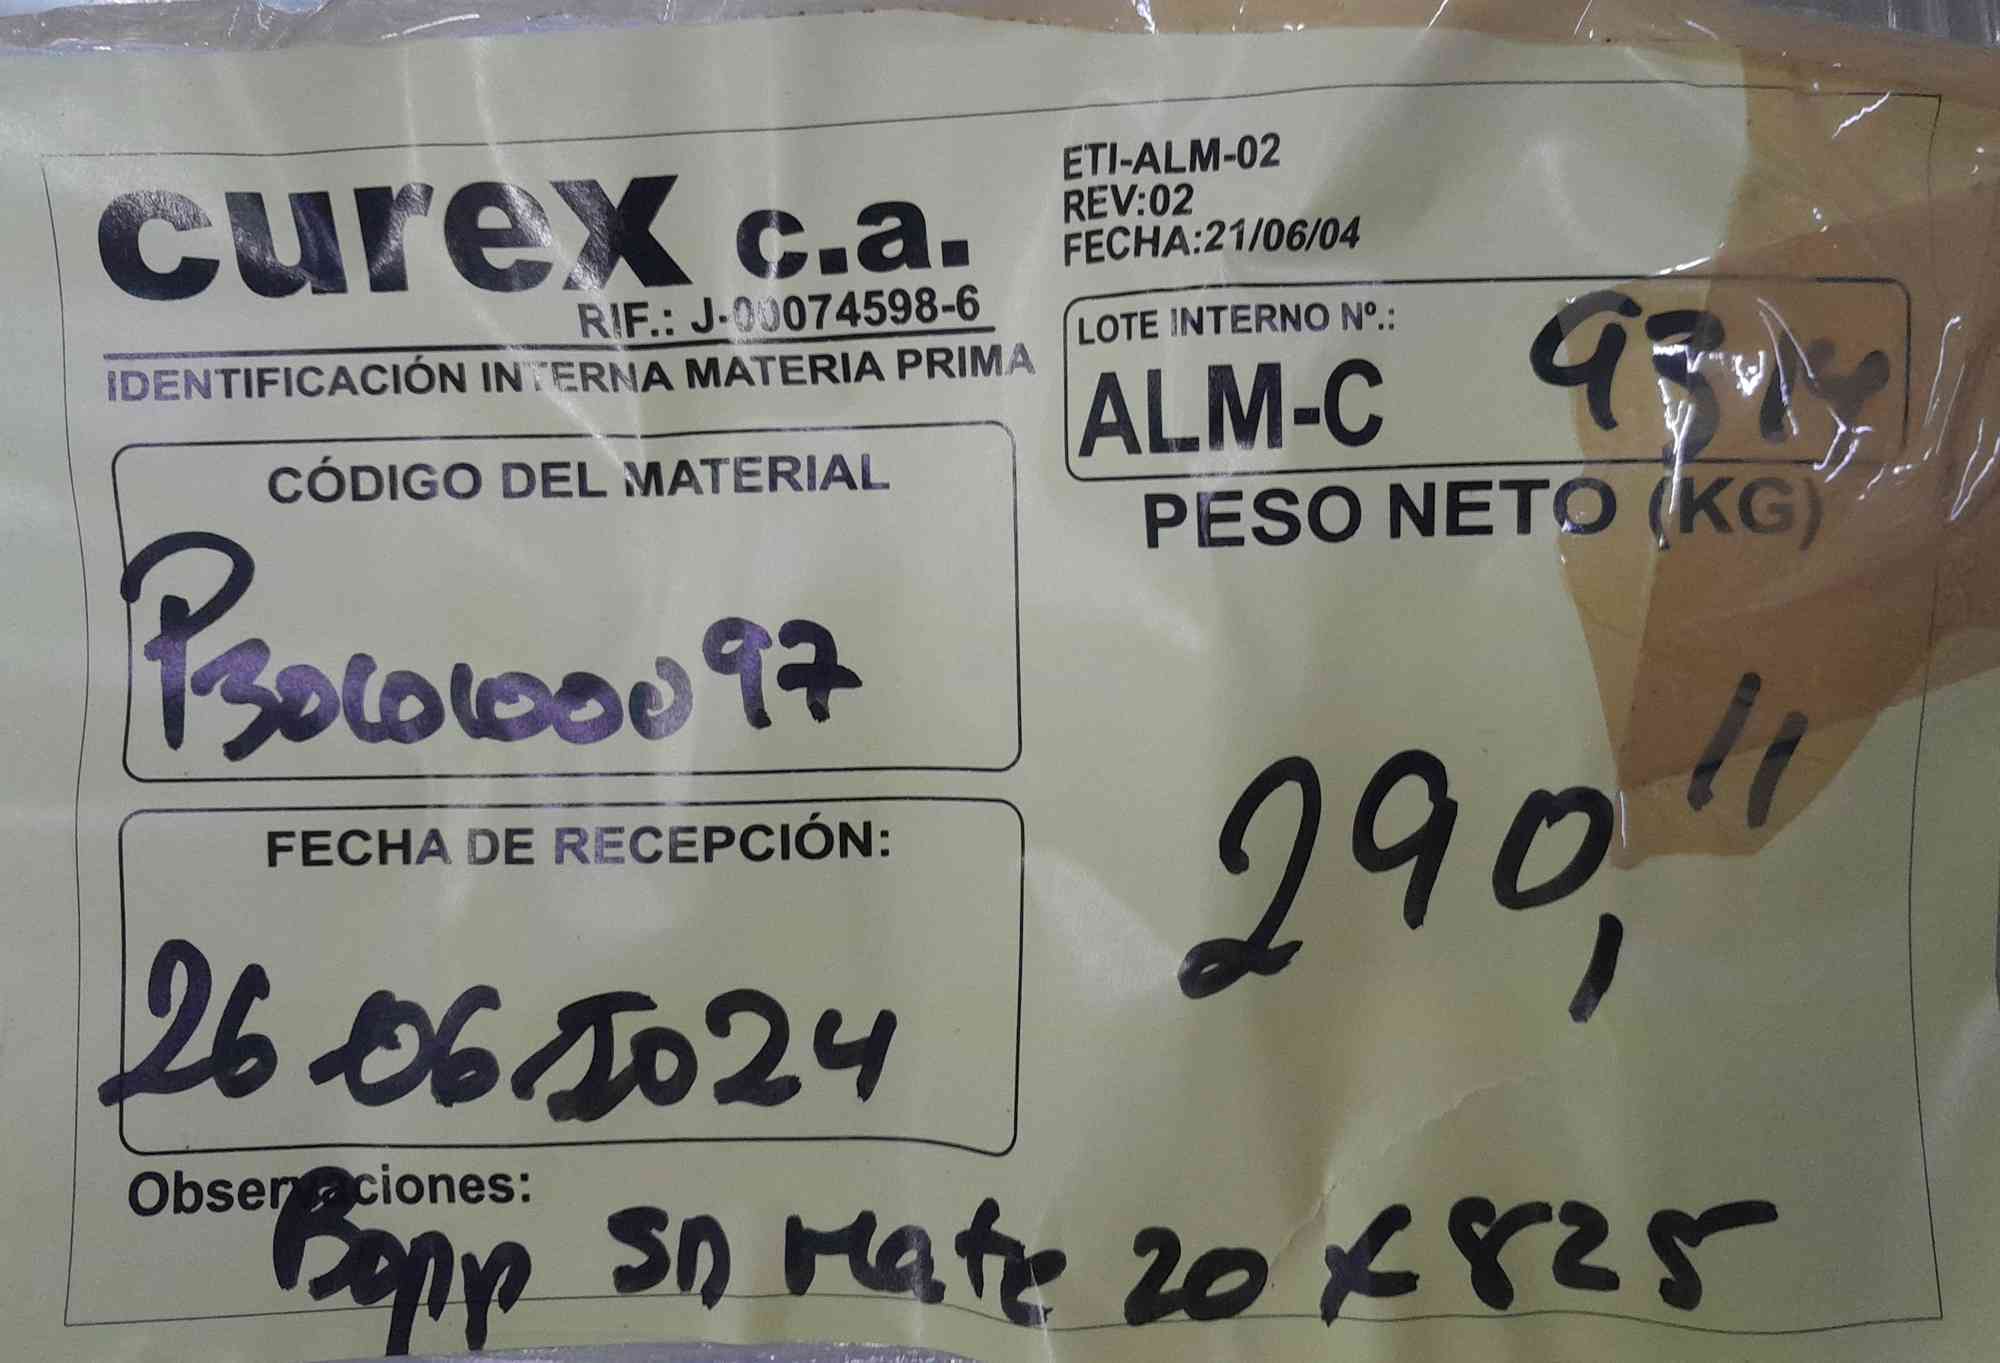 curex c.a.
RIF.: J-00074598-6
IDENTIFICACIÓN INTERNA MATERIA PRIMA
ETI-ALM-02
REV:02
FECHA:21/06/04
LOTE INTERNO Nº.:
ALM-C 9314
CÓDIGO DEL MATERIAL
P30101000097
PESO NETO (KG)
290,11
FECHA DE RECEPCIÓN:
26 06 2024
Observaciones:
Bopp SD Mate 20 x 825